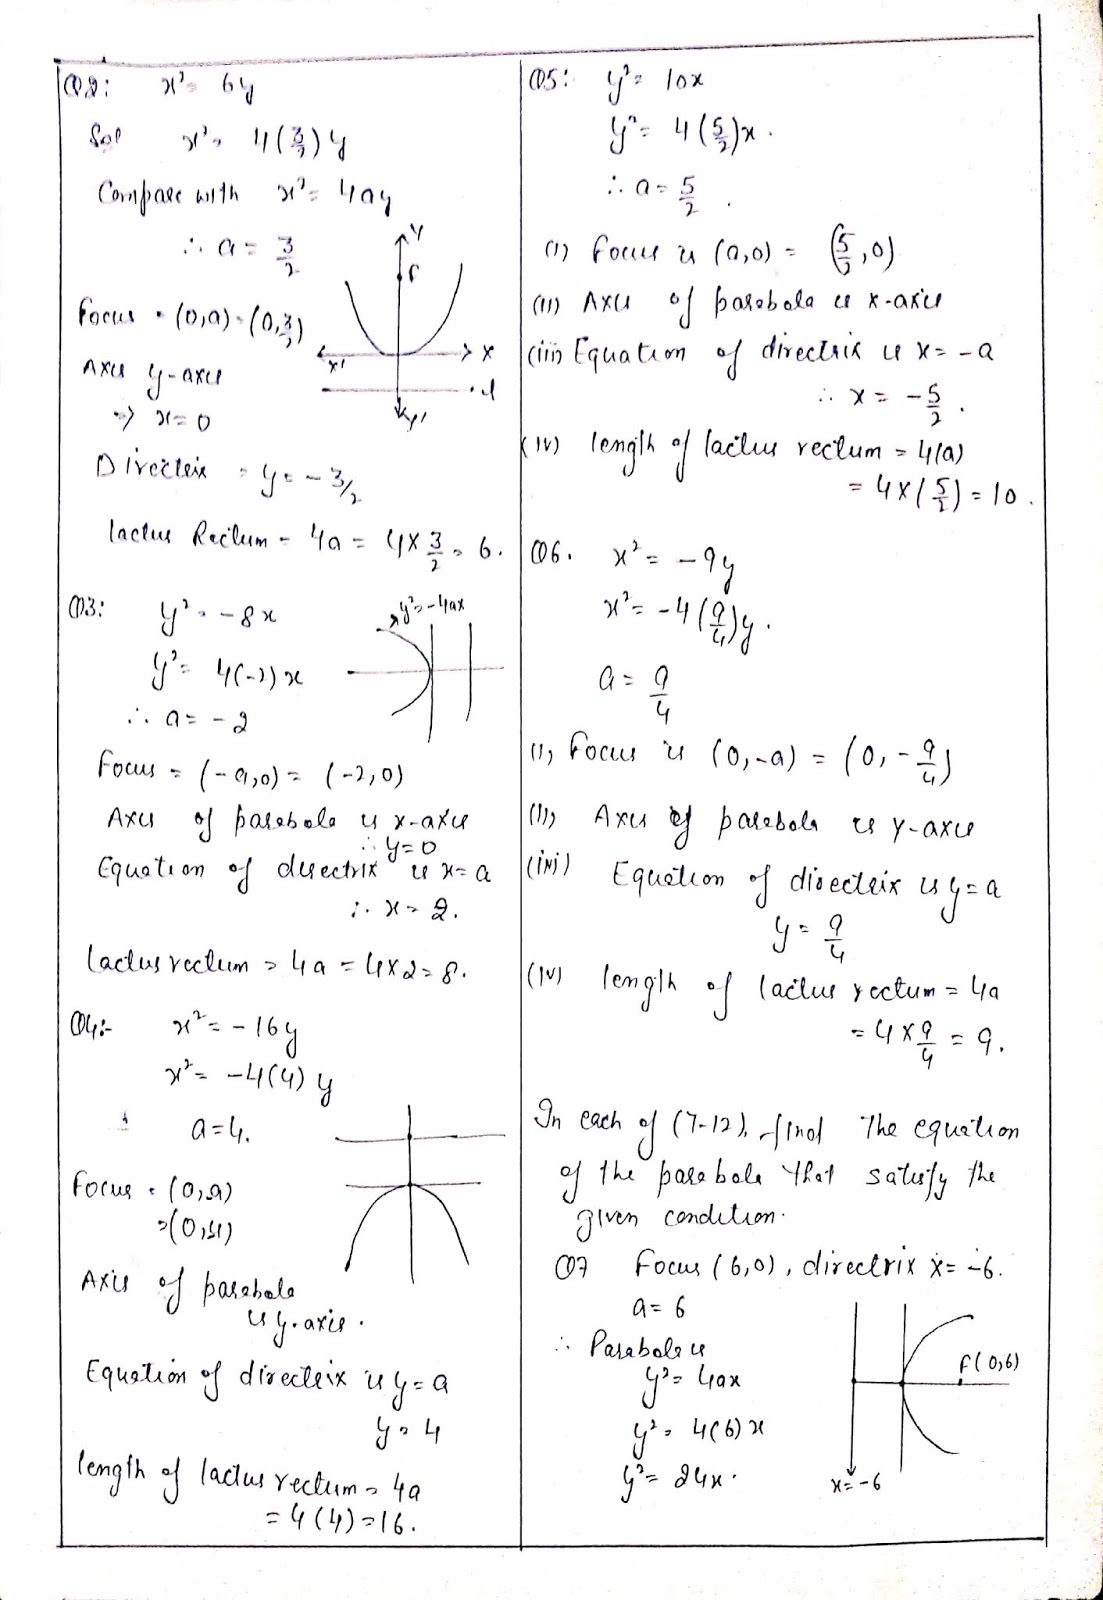 Q2: x² = 6y
Sol x² = 4(3/2)y
Compare with x² = 4ay
∴ a = 3/2
Y
F
Focus = (0,a) = (0,3/2)
X' X
Axis y-axis
l
⇒ x = 0
Y'
Directrix = y = -3/2
lactus Rectum = 4a = 4×3/2 = 6.
Q3: y² = -8x
y² = -4ax
y² = 4(-2)x
∴ a = -2
Focus = (-a,0) = (-2,0)
Axis of parabola is x-axis
∴ y=0
Equation of directrix is x=a
∴ x = 2.
Lactus rectum = 4a = 4×2 = 8.
Q4:- x² = -16y
x² = -4(4)y
a=4.
Focus = (0,a)
=(0,4)
Axis of parabola
is y-axis.
Equation of directrix is y=a
y=4
length of lactus rectum = 4a
= 4(4)=16.
Q5: y² = 10x
y² = 4(5/2)x.
∴ a = 5/2.
(i) Focus is (a,0) = (5/2,0)
(ii) Axis of parabola is x-axis
(iii) Equation of directrix is x = -a
∴ x = -5/2.
(iv) length of lactus rectum = 4(a)
= 4×(5/2) = 10.
Q6. x² = -9y
x² = -4(9/4)y.
a = 9/4
(i) Focus is (0,-a) = (0,-9/4)
(ii) Axis of parabola is y-axis
(iii) Equation of directrix is y=a
y = 9/4
(iv) length of lactus rectum = 4a
= 4×9/4 = 9.
In each of (7-12), find the equation
of the parabola that satisfy the
given condition.
Q7 Focus (6,0), directrix x = -6.
a=6
∴ Parabola is
y² = 4ax
F(0,6)
y² = 4(6)x
y² = 24x.
x=-6